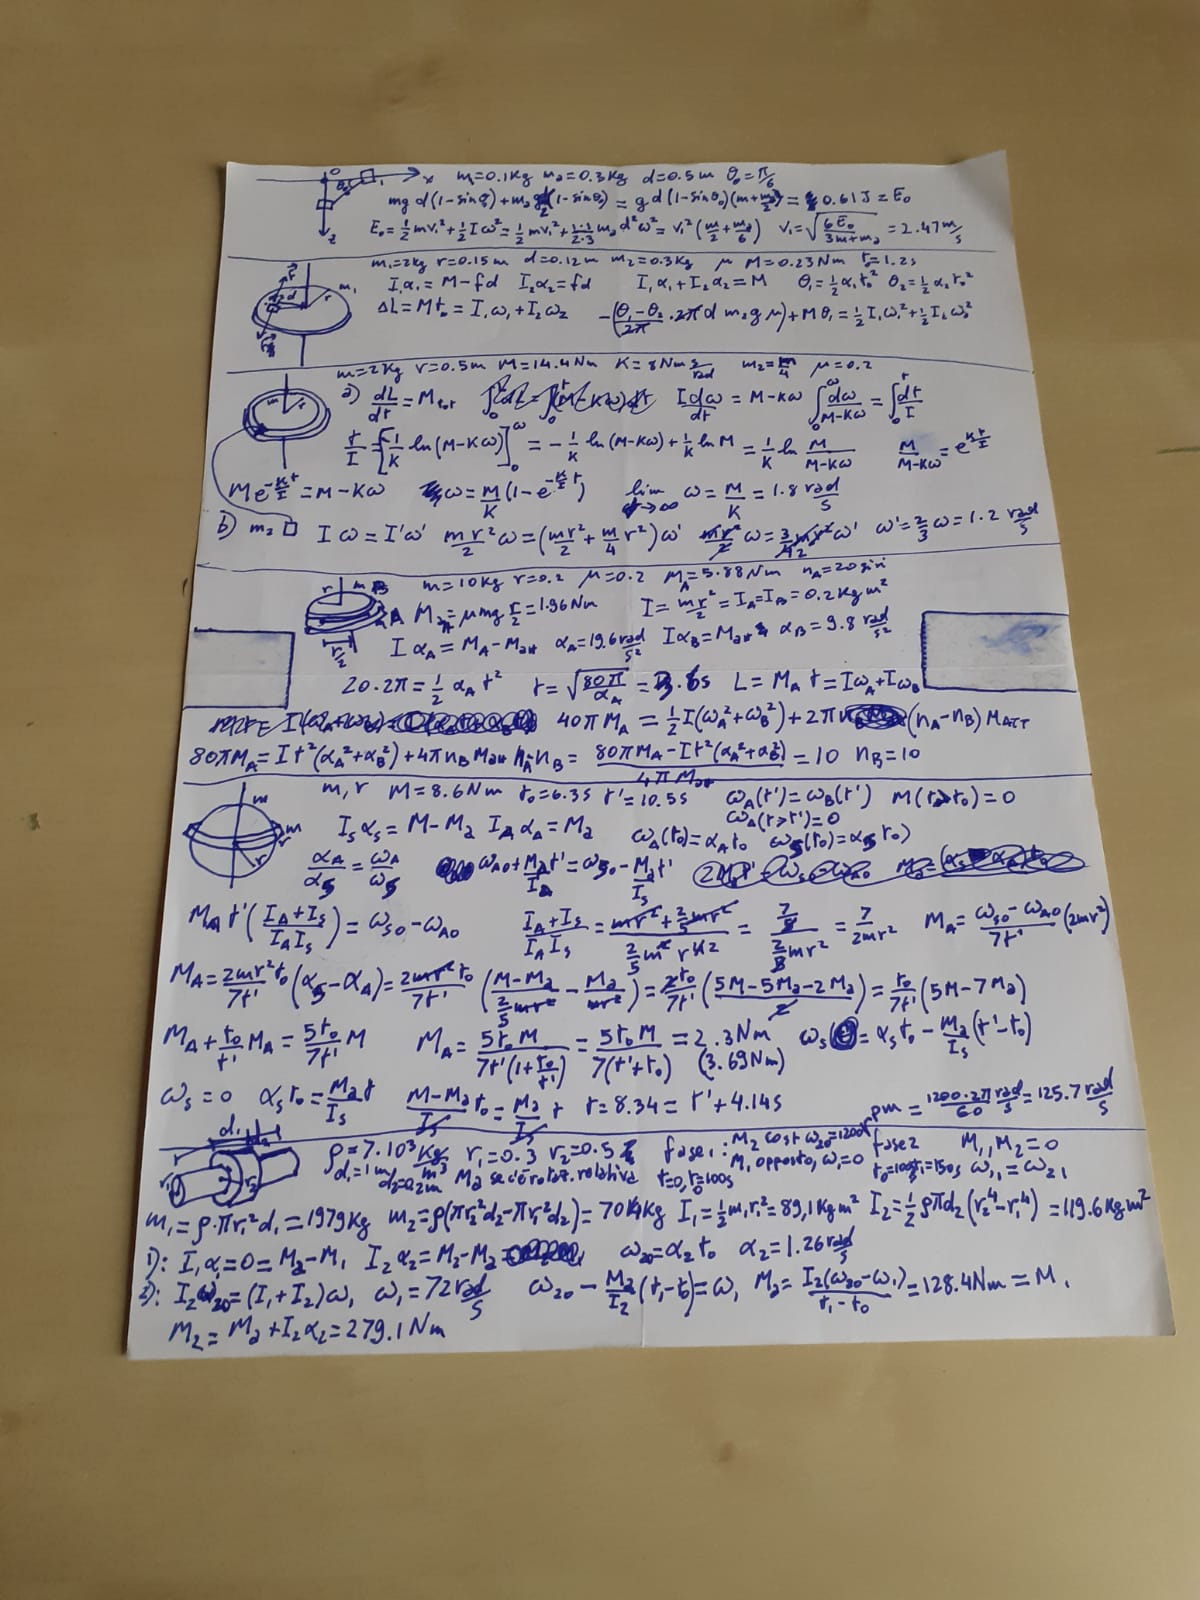 m=0.1Kg m₂=0.3Kg d=0.5m θ₀=π/6
mgd(1-sinθ₀)+m₂g d/2(1-sinθ₀)=gd(1-sinθ₀)(m+m₂/2)=0.61J=E₀
E₀=1/2mv₁²+1/2Iω²=1/2mv₁²+1/2·1/3m₂d²ω²=v₁²(m/2+m₂/6) v₁=√(6E₀/(3m+m₂))=2.47m/s
m₁=2kg r=0.15m d=0.12m m₂=0.3Kg μ M=0.23Nm t₀=1.2s
I₁α₁=M-fd I₂α₂=fd I₁α₁+I₂α₂=M θ₁=1/2α₁t₀² θ₂=1/2α₂t₀²
ΔL=Mt₀=I₁ω₁+I₂ω₂ -((θ₁-θ₂)/2π·2πd m₂gμ)+Mθ₁=1/2I₁ω₁²+1/2I₂ω₂²
m=2Kg r=0.5m M=14.4Nm K=8Nm s/rad m₂=m/4 μ=0.2
a) dL/dt=Mtot I dω/dt=M-Kω ∫₀^ω dω/(M-Kω)=∫₀^t dt/I
t/I=[1/K ln(M-Kω)]₀^ω=-1/K ln(M-Kω)+1/K ln M=1/K ln M/(M-Kω) M/(M-Kω)=e^(Kt/I)
Me^(-K/I t)=M-Kω ω=M/K(1-e^(-K/I t)) lim t→∞ ω=M/K=1.8 rad/s
b) m₂ Iω=I'ω' mr²/2 ω=(mr²/2+m/4 r²)ω' mr²/2 ω=3/4 mr²ω' ω'=2/3 ω=1.2 rad/s
m=10Kg r=0.2 μ=0.2 M_A=5.88Nm n_A=20giri
Matt=μmg r/2=1.96Nm I=mr²/2=I_A=I_B=0.2Kgm²
Iα_A=M_A-Matt α_A=19.6rad/s² Iα_B=Matt α_B=9.8rad/s²
20·2π=1/2 α_A t² t=√(80π/α_A)=3.6s L=M_A t=Iω_A+Iω_B
40πM_A=1/2I(ω_A²+ω_B²)+2π(n_A-n_B)Matt
80πM_A=It²(α_A²+α_B²)+4πn_BMatt n_A-n_B=(80πM_A-It²(α_A²+α_B²))/4πMatt=10 n_B=10
m,r M=8.6Nm t₀=6.3s t'=10.5s ω_A(t')=ω_B(t') M(t>t₀)=0
ω_A(t>t')=0
I_sα_s=M-Ma I_Aα_A=Ma ω_A(t₀)=α_At₀ ω_s(t₀)=α_st₀)
α_A/α_s=ω_A/ω_s ω_A0+Ma/I_A t'=ω_s0-Ma/I_s t'
M_A t'((I_A+I_s)/(I_AI_s))=ω_s0-ω_A0 (I_A+I_s)/(I_AI_s)=(mr²+2/5mr²)/(2/5m²r⁴)=(7/5)/(2/5 mr²)=7/(2mr²) M_A=(ω_s0-ω_A0)/7t'(2mr²)
M_A=2mr²t₀/7t'(α_s-α_A)=2mr²t₀/7t'((M-Ma)/(2/5mr²)-Ma/mr²)=2t₀/7t'((5M-5Ma-2Ma)/2)=t₀/7t'(5M-7Ma)
M_A+t₀/t' M_A=5t₀/7t' M M_A=5t₀M/(7t'(1+t₀/t'))=5t₀M/(7(t'+t₀))=2.3Nm (3.69Nm) ω_s=α_st₀-Ma/I_s(t'-t₀)
ω_s=0 α_st₀=Ma/I_s t (M-Ma)/I_s t₀=Ma/I_s t t=8.34=t'+4.14s
pm=1200·2π/60 rad/s=125.7rad/s
ρ=7·10³Kg/m³ r₁=0.3 r₂=0.5 fase1: M₂ cost ω₂₀=1200 fase2 M₁,M₂=0
d₁=1m d₂=0.2m Ma se c'è rotaz. relativa M₁ opposto, ω₁=0 t=0, t₀=100s t₀=100s t₁=150s ω₁₁=ω₂₁
m₁=ρ·πr₁²d₁=1979Kg m₂=ρ(πr₂²d₂-πr₁²d₂)=704Kg I₁=1/2m₁r₁²=89,1Kgm² I₂=1/2ρπd₂(r₂⁴-r₁⁴)=119.6Kgm²
1): I₁α₁=0=Ma-M₁ I₂α₂=M₂-Ma ω₂₀=α₂t₀ α₂=1.26rad/s
2): I₂ω₂₀=(I₁+I₂)ω₁ ω₁=72rad/s ω₂₀-Ma/I₂(t₁-t₀)=ω₁ Ma=I₂(ω₂₀-ω₁)/(t₁-t₀)=128.4Nm=M₁
M₂=Ma+I₂α₂=279.1Nm